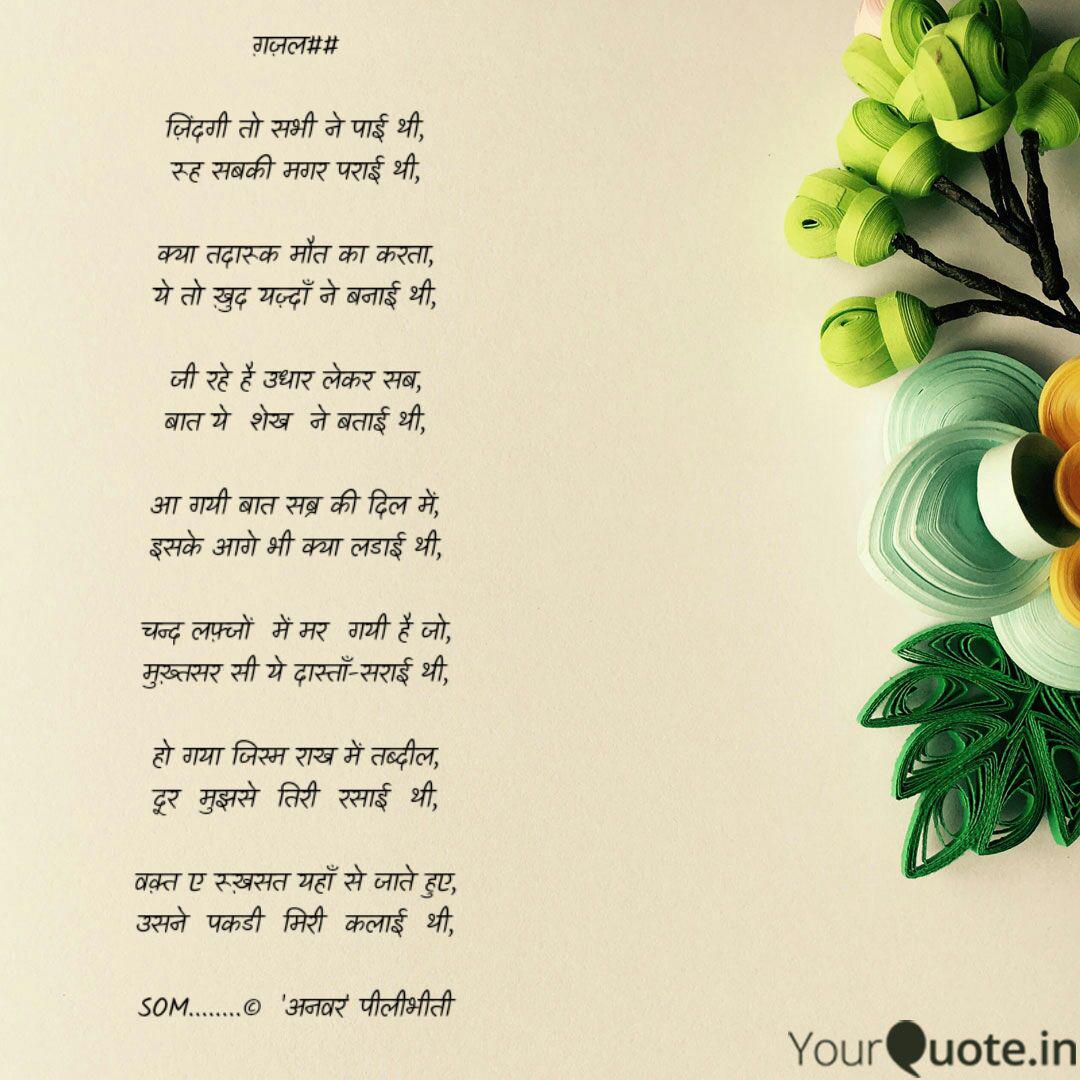 ग़ज़ल##
ज़िंदगी तो सभी ने पाई थी,
रूह सबकी मगर पराई थी,
क्या तदारूक मौत का करता,
ये तो ख़ुद यज़्दाँ ने बनाई थी,
जी रहे है उधार लेकर सब,
बात ये शेख ने बताई थी,
आ गयी बात सब्र की दिल में,
इसके आगे भी क्या लडाई थी,
चन्द लफ़्जों में मर गयी है जो,
मुख़्तसर सी ये दास्ताँ-सराई थी,
हो गया जिस्म राख में तब्दील,
दूर मुझसे तिरी रसाई थी,
वक़्त ए रूख़सत यहाँ से जाते हुए,
उसने पकडी मिरी कलाई थी,
SOM........© 'अनवर' पीलीभीती
YourQuote.in